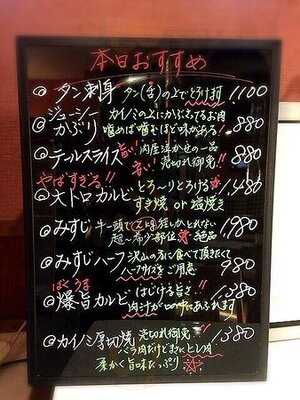 本日おすすめ
◎タン刺身 タン(舌)の上でとろけます 1,100
◎ジューシーかぶり カイノミの上にかぶってるお肉 880
噛めば噛むほど味がある!
◎テールスライス 旨い!! 肉屋泣かせの一品 880
売切れ御免!!
やばすぎる!!
◎大トロカルビ とろ〜りとろける 1,480
すき焼 or 塩焼き
◎みすじ 牛一頭で しかとれない 1,980
超・希少部位 絶品
◎みすじハーフ 沢山の方に食べて頂きたくて 980
ハーフサイズをご用意
ばくうま
◎爆旨カルビ はじける旨さ!! 1,380
肉汁が口の中にあふれます
◎カイノミ厚切焼 売切れ御免!! 1,380
バラ肉だけどまさにヒレ肉
柔かく旨味たっぷり